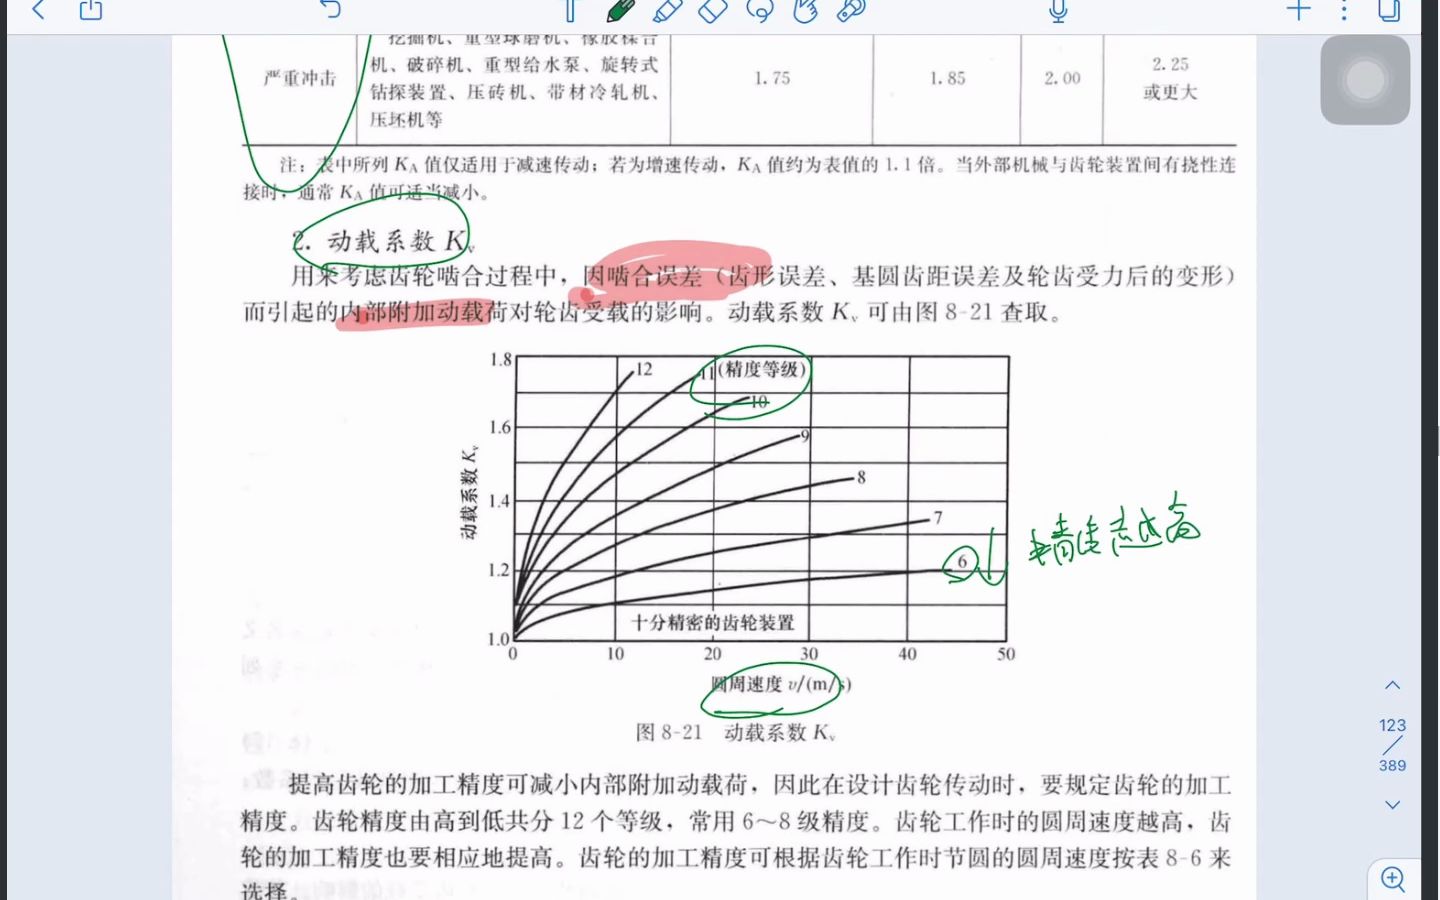 挖掘机、重型球磨机、橡胶糅合
严重冲击
机、破碎机、重型给水泵、旋转式
钻探装置、压砖机、带材冷轧机、
压坯机等
1.75
1.85
2.00
2.25
或更大
注：表中所列 KA 值仅适用于减速传动；若为增速传动，KA 值约为表值的 1.1 倍。当外部机械与齿轮装置间有挠性连
接时，通常 KA 值可适当减小。
2. 动载系数 Kv
用来考虑齿轮啮合过程中，因啮合误差（齿形误差、基圆齿距误差及轮齿受力后的变形）
而引起的内部附加动载荷对轮齿受载的影响。动载系数 Kv 可由图 8-21 查取。
1.8
1.6
1.4
1.2
1.0
动载系数 Kv
12
11(精度等级)
10
9
8
7
6
精度越高
十分精密的齿轮装置
0
10
20
30
40
50
圆周速度 v/(m/s)
图 8-21 动载系数 Kv
提高齿轮的加工精度可减小内部附加动载荷，因此在设计齿轮传动时，要规定齿轮的加工
精度。齿轮精度由高到低共分 12 个等级，常用 6～8 级精度。齿轮工作时的圆周速度越高，齿
轮的加工精度也要相应地提高。齿轮的加工精度可根据齿轮工作时节圆的圆周速度按表 8-6 来
选择。
123
389